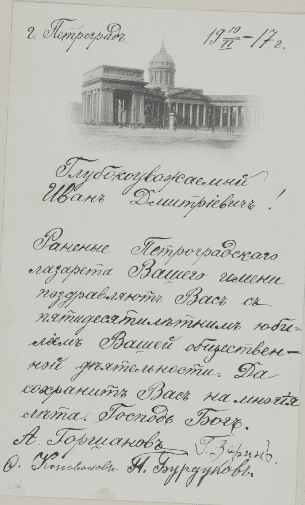 г. Петроградъ. 19 19/II –17 г.
Глубокоуважаемый
Иванъ Дмитріевичъ!
Раненые Петроградскаго
лазарета Вашего имени
поздравляютъ Васъ съ
пятидесятилѣтнимъ юби-
леемъ Вашей обществен-
ной дѣятельности. Да
сохранитъ Васъ на многая
лѣта. Господь Богъ.
А. Горшановъ Г. Заринъ.
Коноваловъ П. Бурдуковъ.